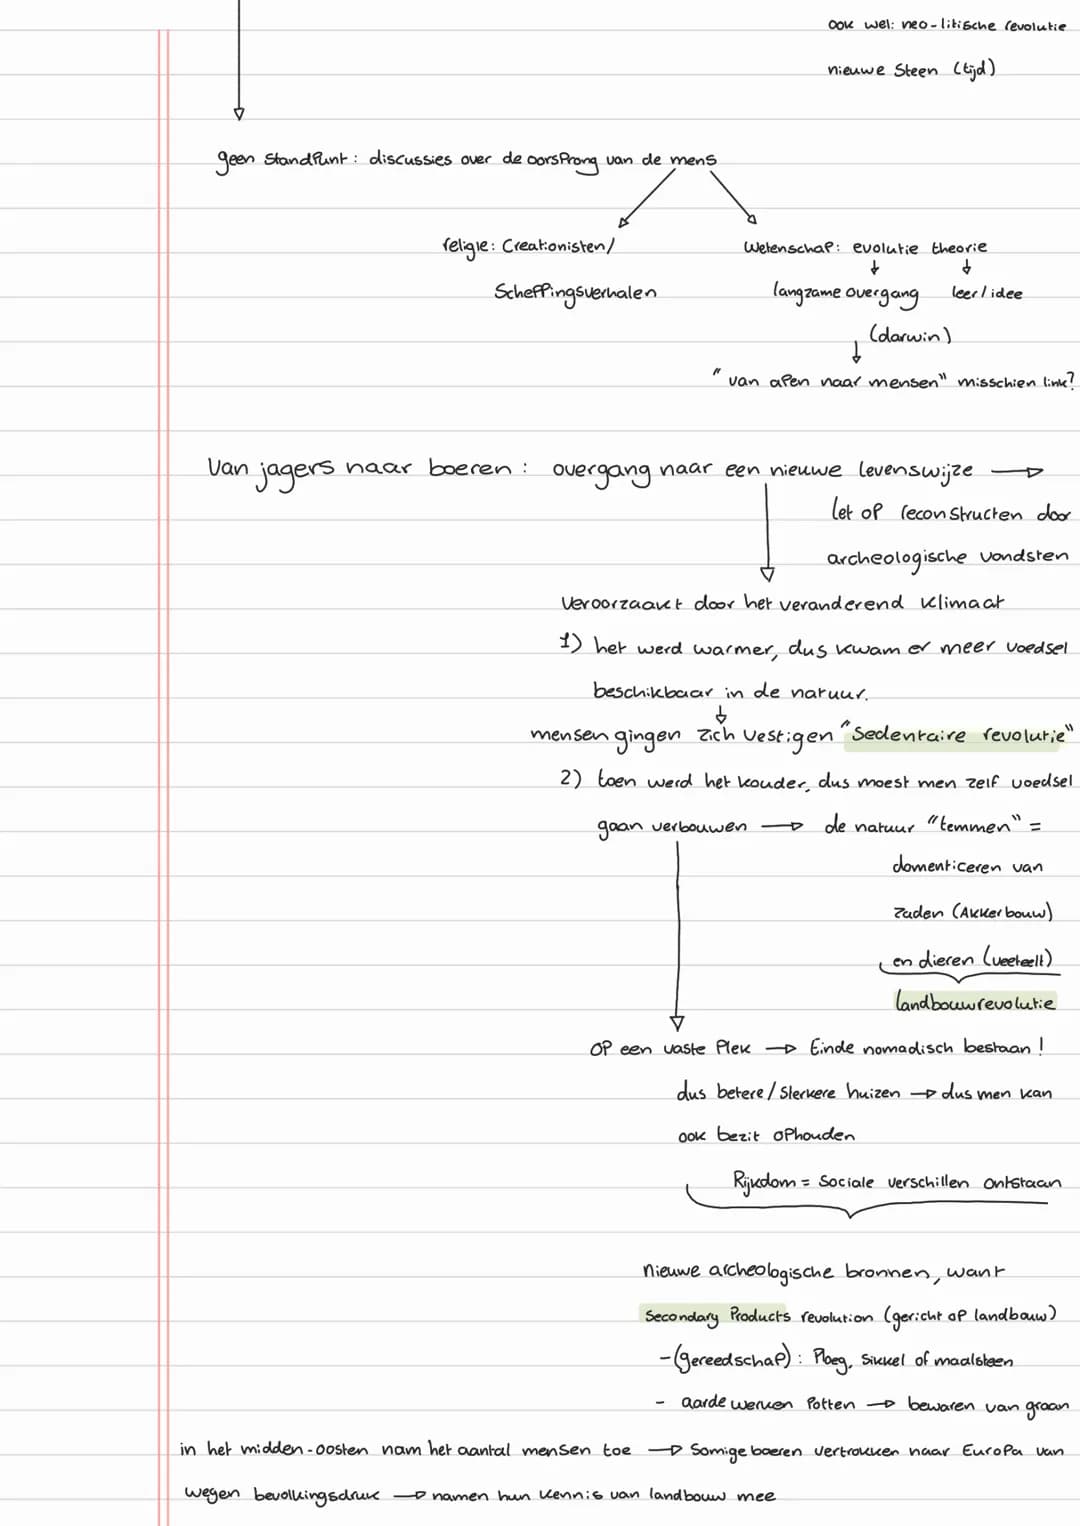 ook wel: neo-litische revolutie
nieuwe Steen (tijd)
geen standpunt: discussies over de oorsprong van de mens
religie: Creationisten/
Scheppingsverhalen
Wetenschap: evolutie theorie
langzame overgang leer/idee
(darwin)
"van apen naar mensen" misschien link?
Van jagers naar boeren: overgang naar een nieuwe levenswijze
let op reconstructen door
archeologische vondsten
Veroorzaakt door het veranderend klimaat
1) het werd warmer, dus kwam er meer voedsel
beschikbaar in de natuur.
mensen gingen zich vestigen "Sedentaire revolutie"
2) toen werd het kouder, dus moest men zelf voedsel
gaan verbouwen → de natuur "temmen" =
domenticeren van
zaden (Akkerbouw)
en dieren (veeteelt)
landbouwrevolutie
op een vaste plek → Einde nomadisch bestaan!
dus betere/Sterkere huizen → dus men kan
ook bezit ophouden
Rijkdom = Sociale verschillen ontstaan
nieuwe archeologische bronnen, want
Secondary Products revolution (gericht op landbouw)
-(gereedschap): Ploeg, Sikkel of maalsteen
- aarde werken Potten → bewaren van graan
in het midden-oosten nam het aantal mensen toe → Somige boeren vertrokken naar Europa van
wegen bevolkingsdruk → namen hun kennis van landbouw mee